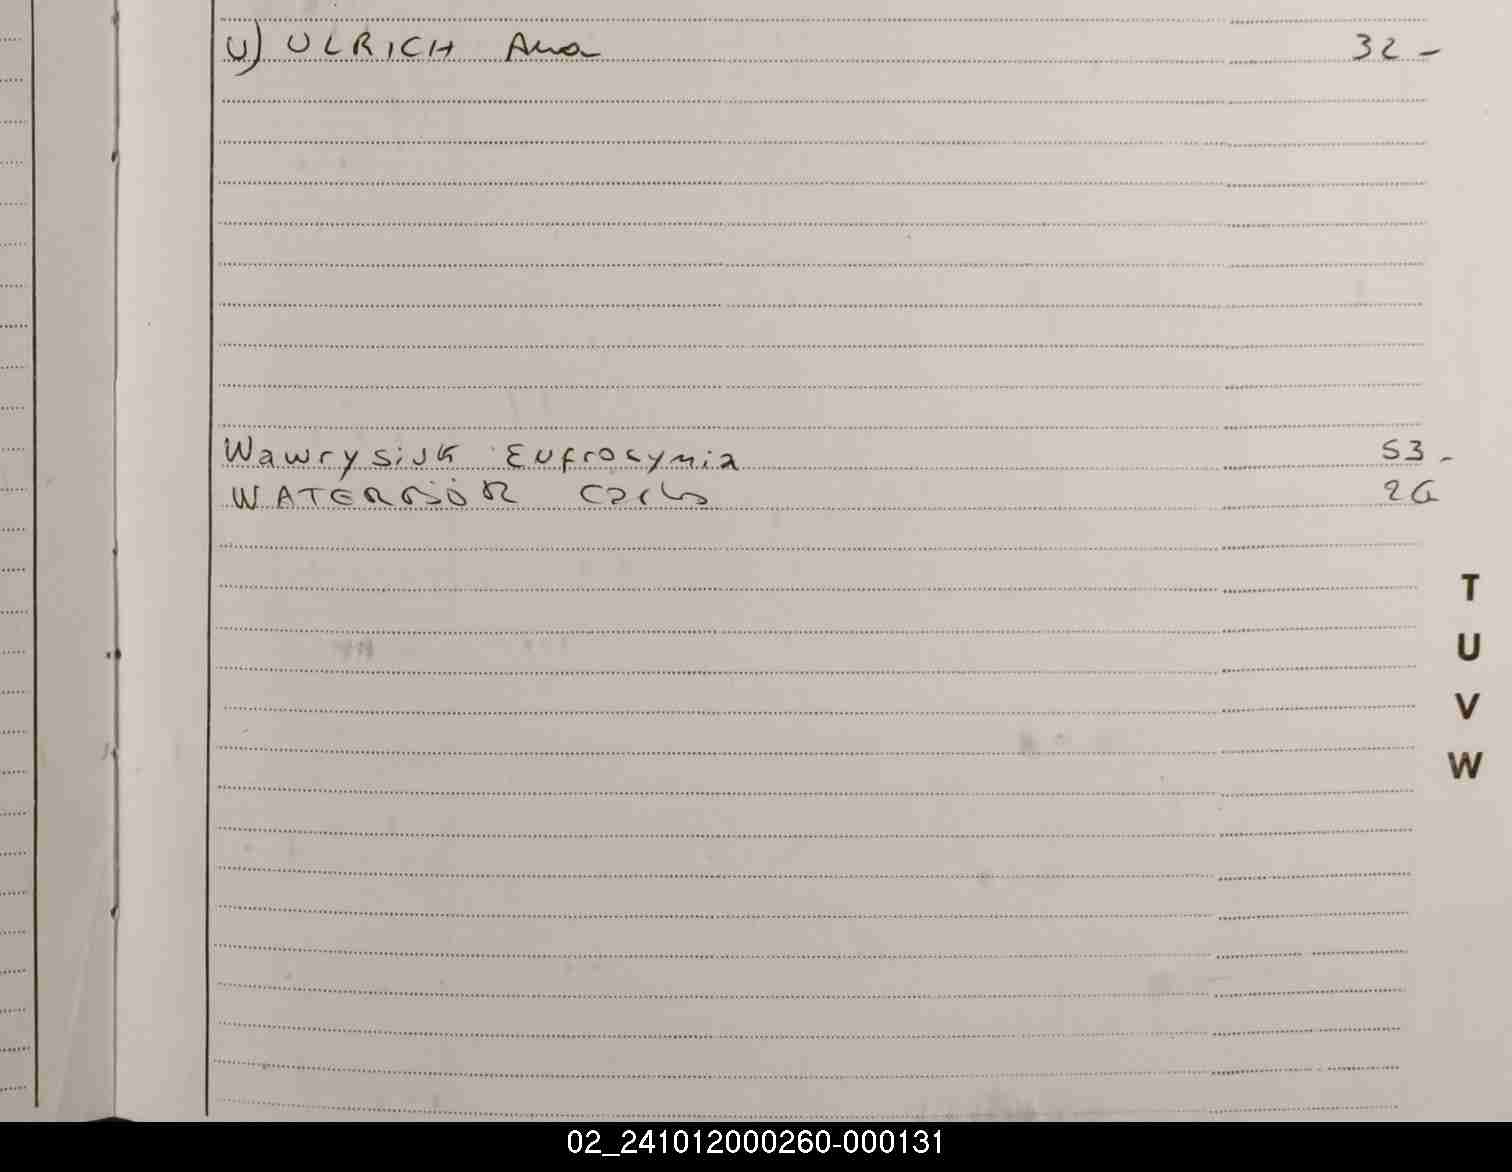 U) ULRICH Ana 32 -
Wawrysiuk Eufrocymia 53 -
Carlos 26
T
U
V
W
02_241012000260-000131